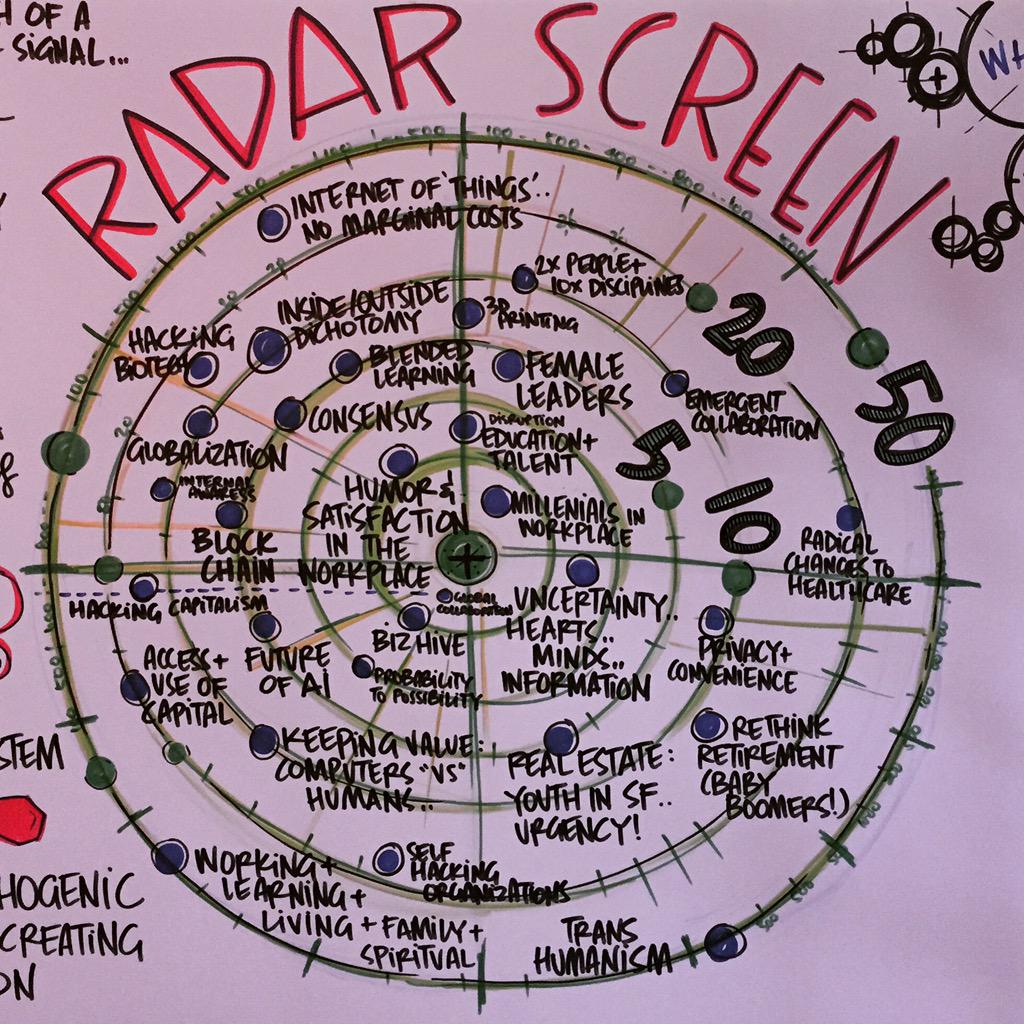 H OF A
SIGNAL...
RADAR SCREEN
WH
INTERNET OF 'THINGS'..
NO MARGINAL COSTS
2X PEOPLE+
10X DISCIPLINES
INSIDE/OUTSIDE
DICHOTOMY
3D
PRINTING
20
50
HACKING
BIOTECH
BLENDED
LEARNING
FEMALE
LEADERS
EMERGENT
COLLABORATION
GLOBALIZATION
CONSENSUS
DISRUPTION
EDUCATION+
TALENT
5
10
INTERNAL
HUMOR &
SATISFACTION
IN THE
WORKPLACE
MILLENIALS IN
WORKPLACE
BLOCK
CHAIN
RADICAL
CHANGES TO
HEALTHCARE
HACKING CAPITALISM
GLOBAL
COLLABORATION
UNCERTAINTY..
HEARTS..
MINDS..
INFORMATION
BIZ HIVE
PRIVACY+
CONVENIENCE
ACCESS+
USE OF
CAPITAL
FUTURE
OF AI
PROBABILITY
TO POSSIBILITY
KEEPING VALUE:
COMPUTERS "VS"
HUMANS..
REAL ESTATE:
YOUTH IN SF..
URGENCY!
RETHINK
RETIREMENT
(BABY
BOOMERS!)
STEM
WORKING+
LEARNING+
LIVING + FAMILY+
SPIRITUAL
SELF
HACKING
ORGANIZATIONS
TRANS
HUMANISM
HOGENIC
CREATING
ON